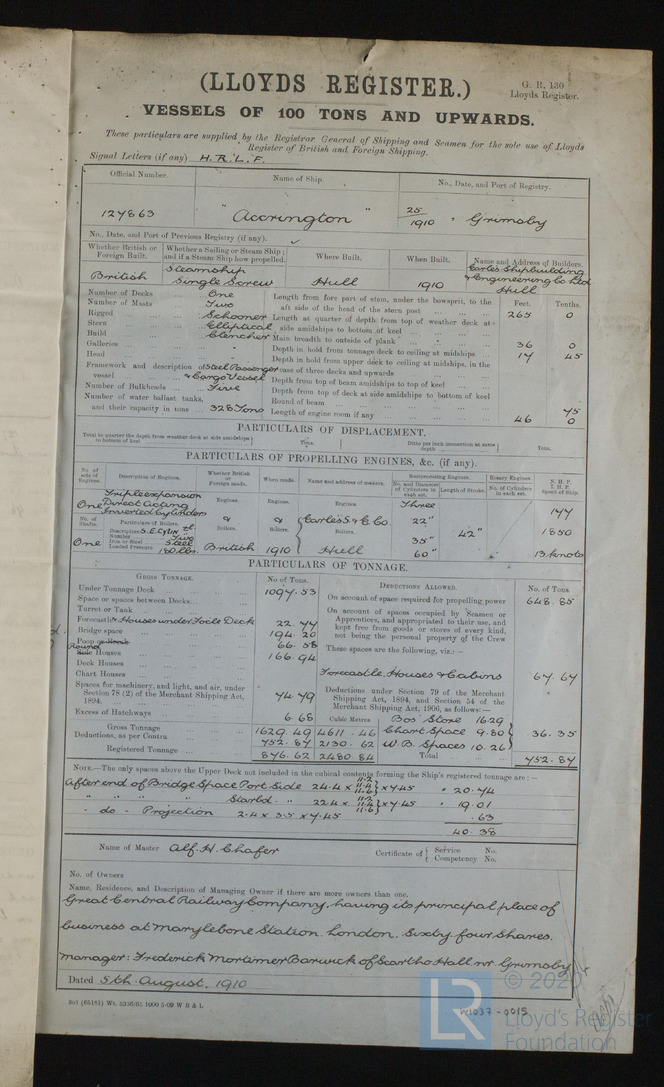 (LLOYDS REGISTER.)
G. R. 130
Lloyds Register.
VESSELS OF 100 TONS AND UPWARDS.
These particulars are supplied by the Registrar General of Shipping and Seamen for the sole use of Lloyds
Register of British and Foreign Shipping.
Signal Letters (if any) H.R.L.F.
Official Number. Name of Ship. No., Date, and Port of Registry.
127863 "Accrington" 25/1910 Grimsby
No., Date, and Port of Previous Registry (if any).
Whether British or Foreign Built. Whether a Sailing or Steam Ship; and if a Steam Ship how propelled. Where Built. When Built. Name and Address of Builders.
British Steamship Single Screw Hull 1910 Earles Shipbuilding & Engineering Co Ltd Hull
Number of Decks One
Number of Masts Two
Rigged Schooner
Stern Elliptical
Build Clencher
Galleries -
Head -
Framework and description of vessel Steel Passenger & Cargo Vessel
Number of Bulkheads Five
Number of water ballast tanks, and their capacity in tons 328 Tons
Feet. Tenths.
Length from fore part of stem, under the bowsprit, to the aft side of the head of the stern post 265 0
Length at quarter of depth from top of weather deck at side amidships to bottom of keel
Main breadth to outside of plank 36 0
Depth in hold from tonnage deck to ceiling at midships 17 45
Depth in hold from upper deck to ceiling at midships, in the case of three decks and upwards
Depth from top of beam amidships to top of keel
Depth from top of deck at side amidships to bottom of keel
Round of beam 75
Length of engine room if any 46 0
PARTICULARS OF DISPLACEMENT.
Total to quarter the depth from weather deck at side amidships to bottom of keel Tons. Ditto per inch immersion at same depth Tons.
PARTICULARS OF PROPELLING ENGINES, &c. (if any).
No. of sets of Engines. Description of Engines. Whether British or Foreign made. When made. Name and address of makers. Reciprocating Engines. Rotary Engines. N. H. P. I. H. P. Speed of Ship.
No. and Diameter of Cylinders in each set. Length of Stroke. No. of Cylinders in each set.
One Triple expansion Direct Acting Inverted Cylinders Engines. Engines. Engines Three 177
No. of Shafts. Particulars of Boilers. & & Earles S. & E. Co. 22" 42" 1850
Description S.E. Cylr
Number Two
Iron or Steel Steel Boilers. Boilers. 35"
One Loaded Pressure 180 lbs. British 1910 Hull 60" 13 knots
PARTICULARS OF TONNAGE.
GROSS TONNAGE. No. of Tons.
Under Tonnage Deck 1097.53
Space or spaces between Decks
Turret or Tank
Forecastle & Houses under Focle Deck 22.77
Bridge space 194.20
Poop or Break 66.58
Round Side Houses 166.94
Deck Houses
Chart Houses
Spaces for machinery, and light, and air, under Section 78 (2) of the Merchant Shipping Act, 1894 74.79
Excess of Hatchways 6.68
Cubic Metres
Gross Tonnage 1629.49 4611.46
Deductions, as per Contra 752.87 2130.62
Registered Tonnage 876.62 2480.84
DEDUCTIONS ALLOWED. No. of Tons
On account of space required for propelling power 648.85
On account of spaces occupied by Seamen or Apprentices, and appropriated to their use, and kept free from goods or stores of every kind, not being the personal property of the Crew
These spaces are the following, viz.:—
Forecastle, Houses & Cabins 67.67
Deductions under Section 79 of the Merchant Shipping Act, 1894, and Section 54 of the Merchant Shipping Act, 1906, as follows:—
Bos' Store 16.29
Chart Space 9.80 36.35
W B. Spaces 10.26
Total 752.87
NOTE.—The only spaces above the Upper Deck not included in the cubical contents forming the Ship's registered tonnage are:—
After end of Bridge Space Port Side 24.4 x 11.2 11.4 11.6 } x 7.45 " 20.74
" " " " Starbd. " 22.4 x 11.2 11.4 11.6 } x 7.45 " 19.01
- do - Projection 2.4 x 3.5 x 7.45 .63
40.38
Name of Master Alf. H. Chafer Certificate of { Service No. Competency No.
No. of Owners
Name, Residence, and Description of Managing Owner if there are more owners than one.
Great Central Railway Company, having its principal place of
business at Marylebone Station. London. Sixty four Shares.
Manager: Frederick Mortimer Barwick of Scartho Hall nr Grimsby
Dated 5th August, 1910
W1037-0015
© 2020
Lloyd's Register
Foundation
LR